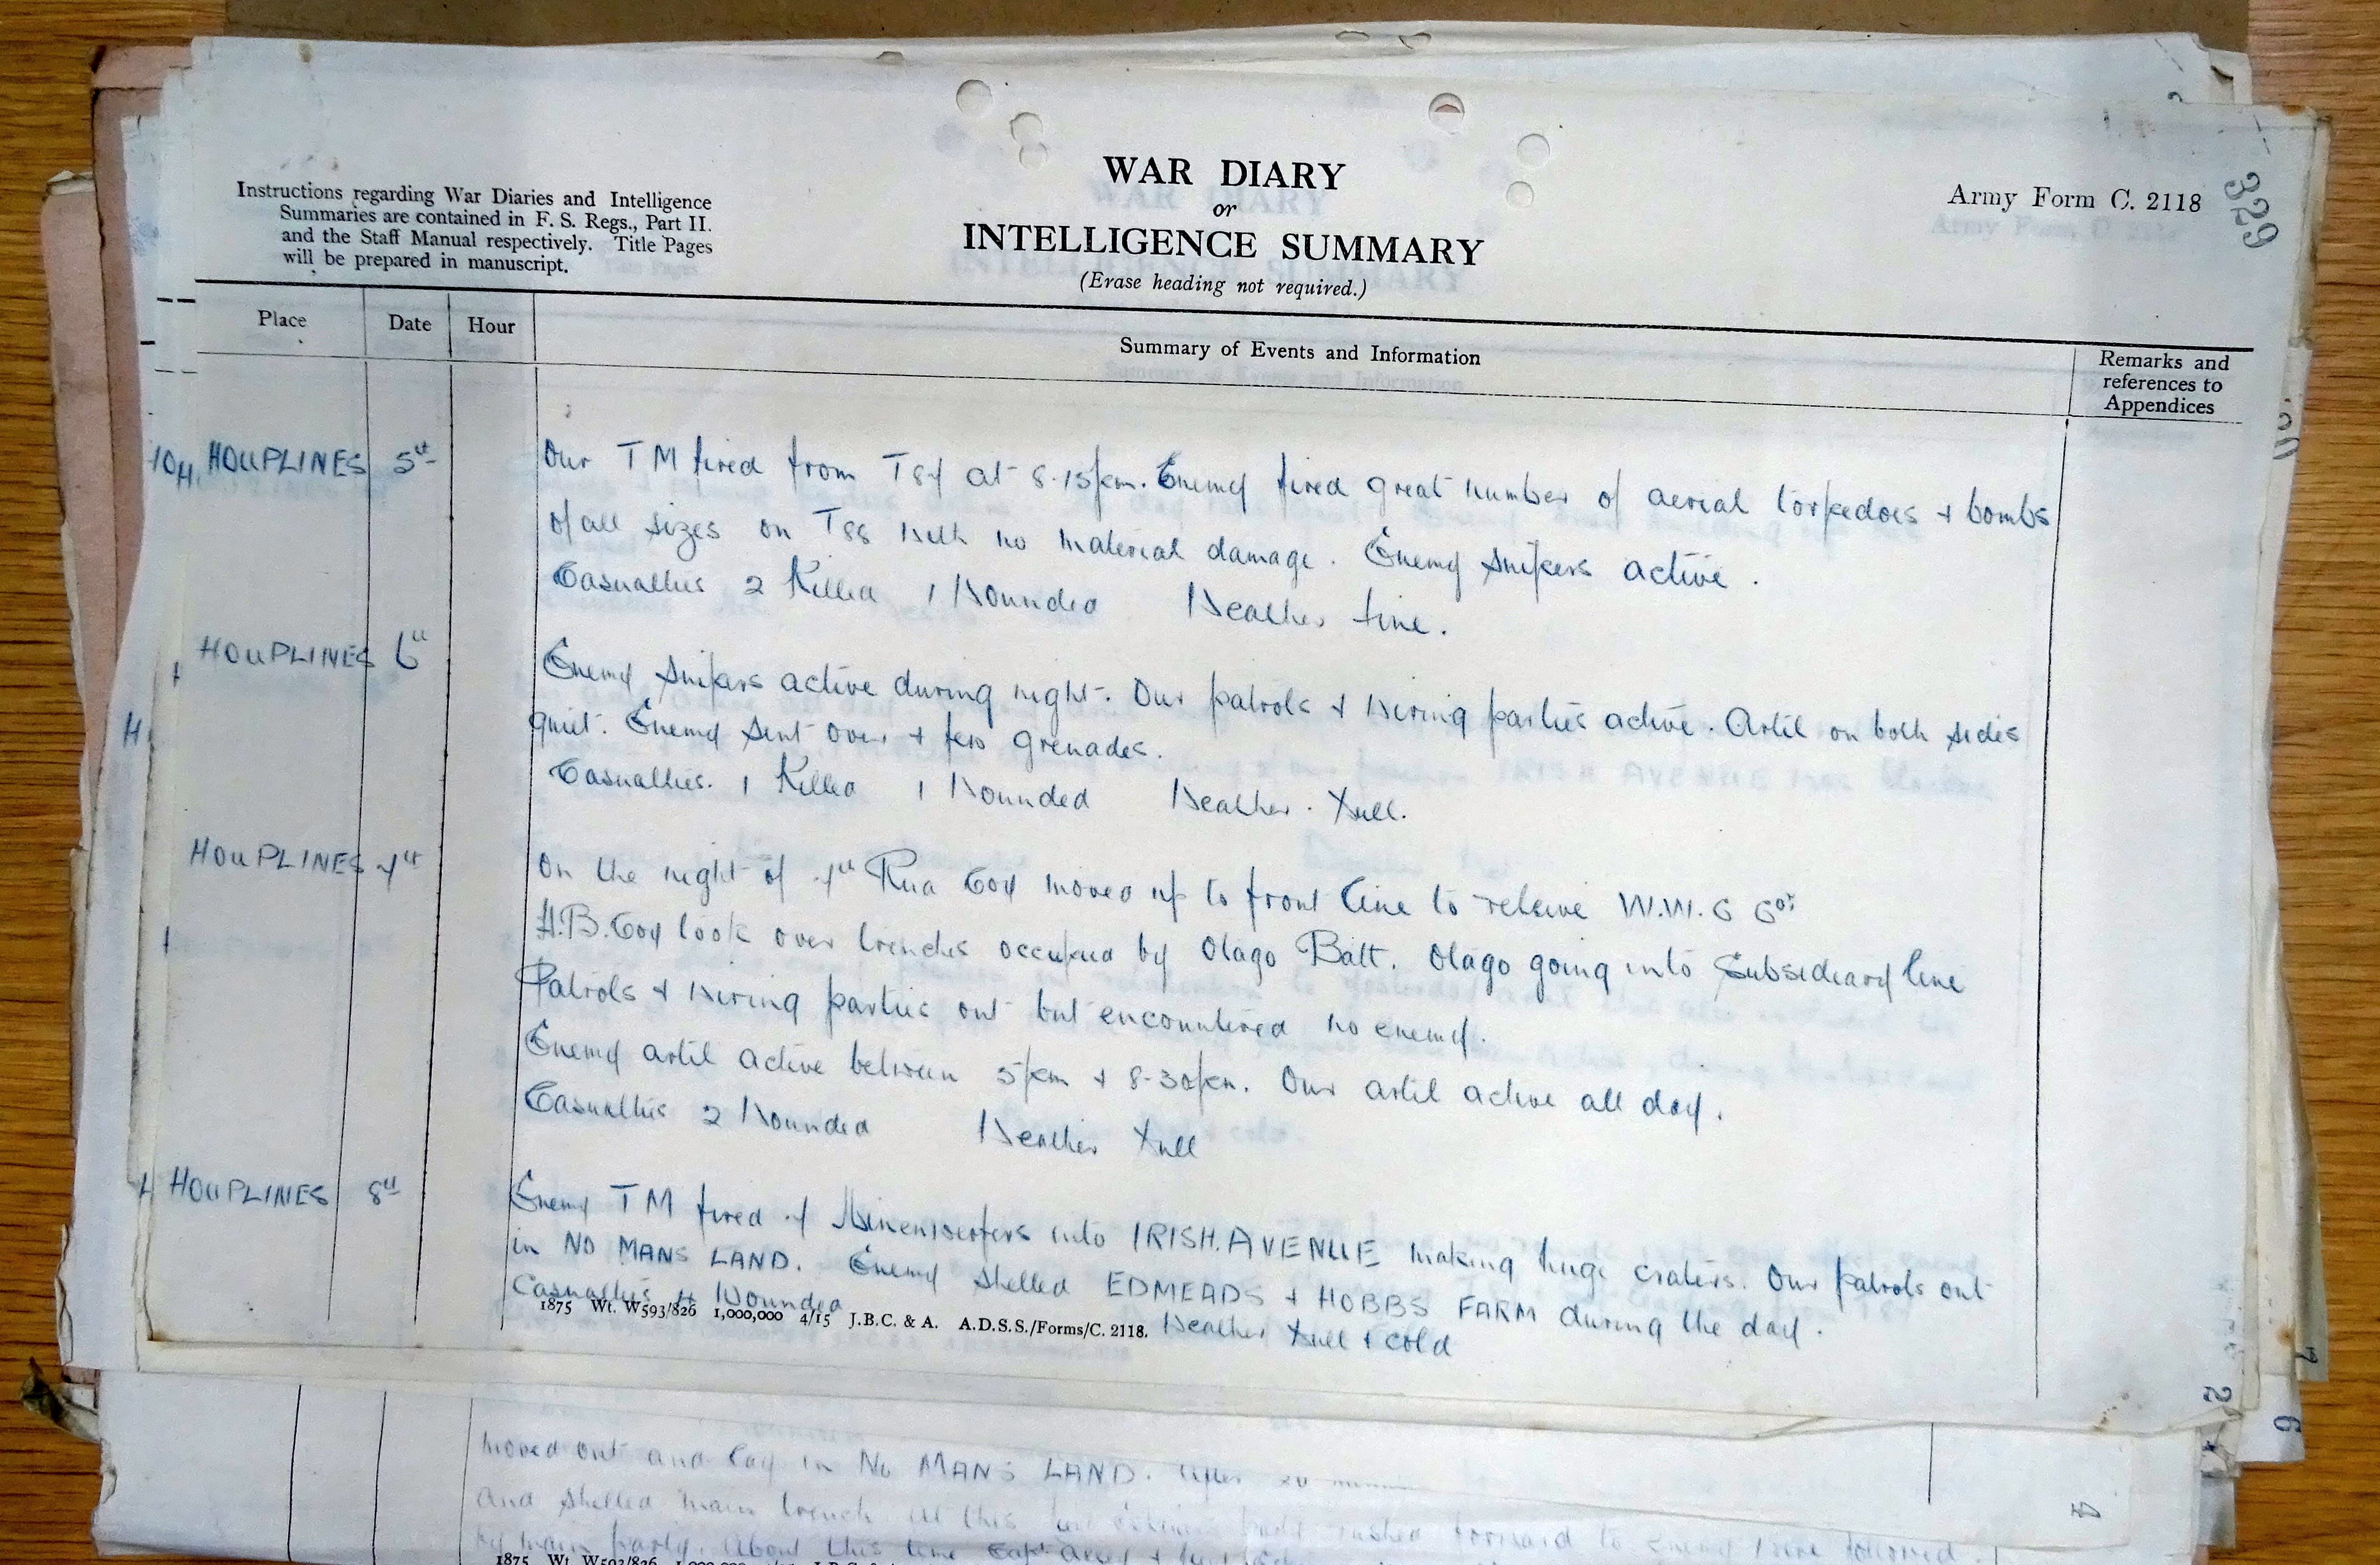 WAR DIARY
or
INTELLIGENCE SUMMARY
(Erase heading not required.)
Instructions regarding War Diaries and Intelligence
Summaries are contained in F. S. Regs., Part II.
and the Staff Manual respectively. Title Pages
will be prepared in manuscript.
Army Form C. 2118
329
Place Date Hour Summary of Events and Information Remarks and references to Appendices
HOUPLINES 5th Our TM fired from T87 at 8.15pm. Enemy fired great number of aerial torpedoes + bombs
of all sizes on T88 with no material damage. Enemy snipers active.
Casualties 2 Killed 1 Wounded Weather fine.
HOUPLINES 6th Enemy snipers active during night. Our patrols + wiring parties active. Artil on both sides
quiet. Enemy sent over + few grenades.
Casualties. 1 Killed 1 Wounded Weather. Dull.
HOUPLINES 7th On the night of 7th Rua Coy moved up to front line to relieve W.W.C Coy
H.B. Coy took over trenches occupied by Otago Batt. Otago going into Subsidiary line
Patrols + wiring parties out but encountered no enemy.
Enemy artil active between 5pm + 8-30pm. Our artil active all day.
Casualties 2 Wounded Weather Dull
HOUPLINES 8th Enemy TM fired 7 Minenwerfers into IRISH. AVENUE making huge craters. Our patrols out
in NO MANS LAND. Enemy shelled EDMEADS + HOBBS FARM during the day.
Casualties 4 Wounded Weather Dull + cold
1875 Wt. W593/826 1,000,000 4/15 J.B.C. & A. A.D.S.S./Forms/C. 2118.
moved out and lay in No MANS LAND. After 20
and shelled main trench at this rushed forward to enemy
by main party. About this time followed.
1875 Wt. W593/826